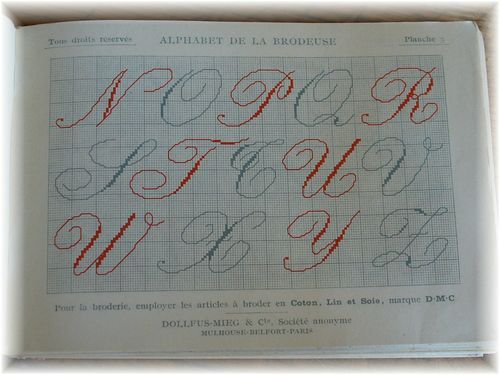 Tous droits réservés ALPHABET DE LA BRODEUSE Planche
N O P Q R
S T T U V
W X Y Z
Pour la broderie, employer les articles à broder en Coton, Lin et Soie, marque D·M·C
DOLLFUS-MIEG & Cie, Société anonyme
MULHOUSE-BELFORT-PARIS